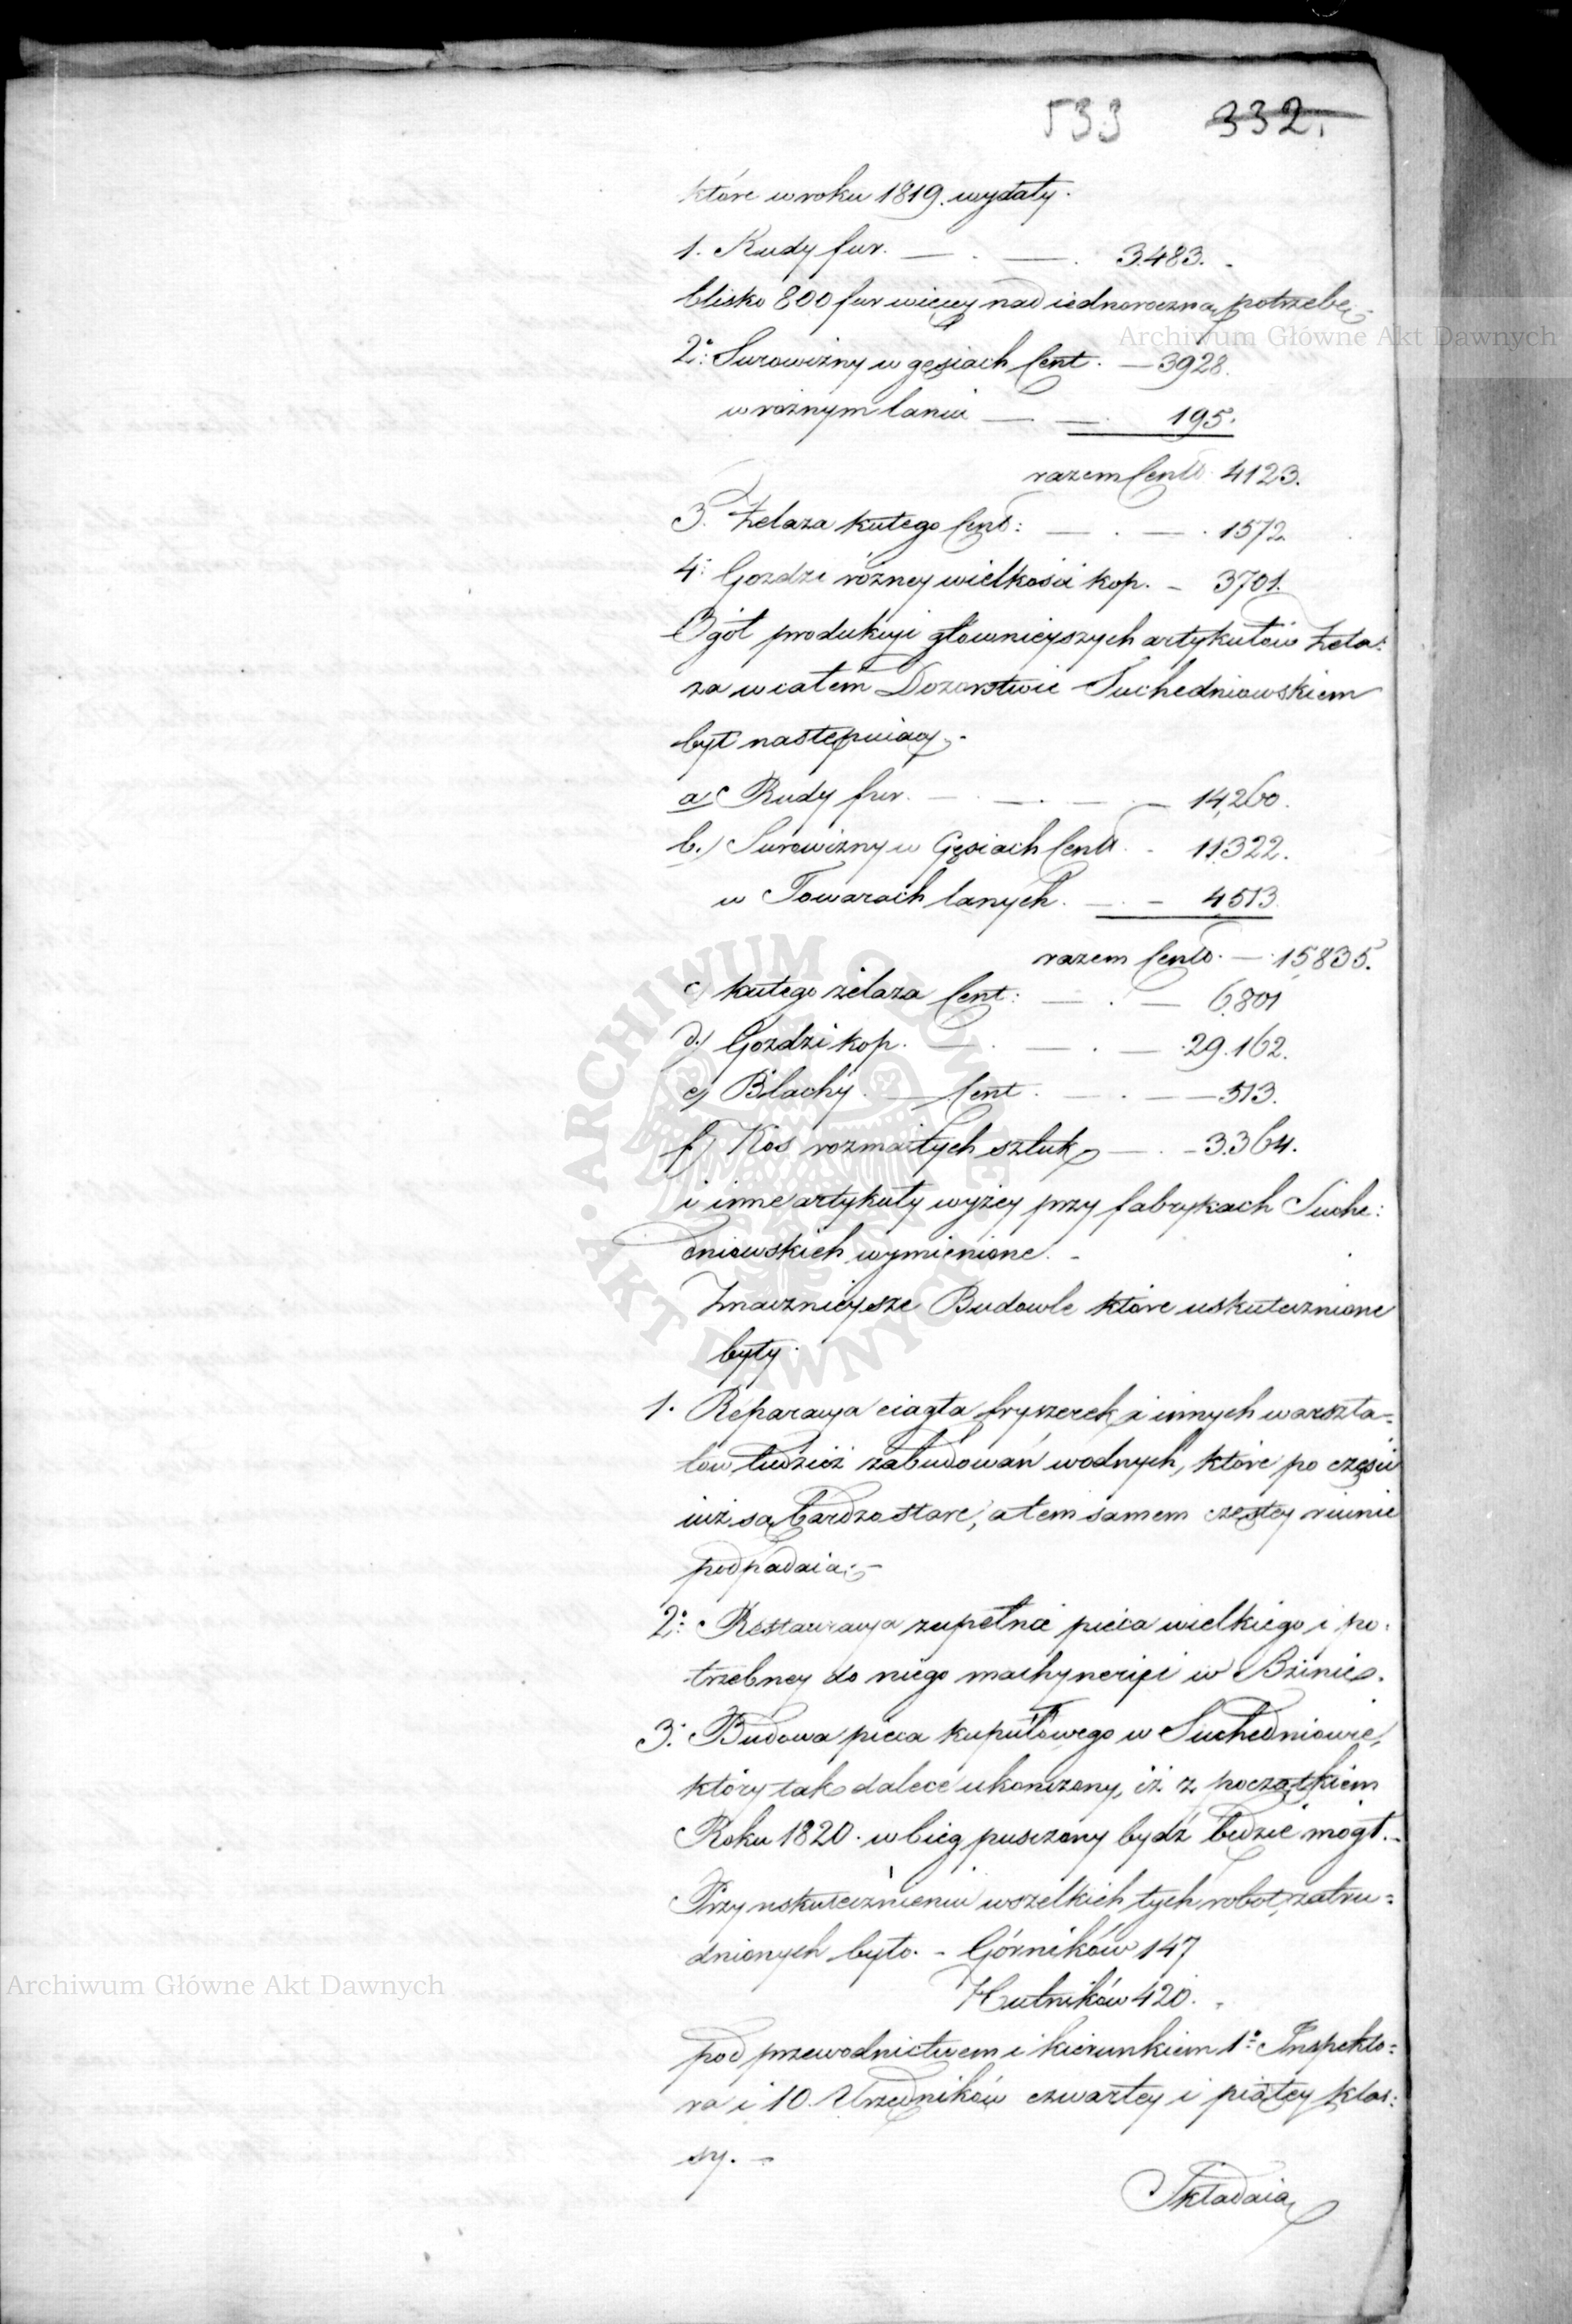 533 332.
które w roku 1819. wydały.
1. Rudy fur. — . — . 3483. -
blisko 800 fur więcey nad iednoroczną potrzebę.
Archiwum Główne Akt Dawnych
2°: Surowizny w gęsiach Cent. — 3928.
w rożnym laniu — — . 195.
razem Cent. 4123.
3. Żelaza kutego Cent: — . — . 1572
4: Gozdzi rózney wielkości kop. - 3701.
Ogół produkcyi głownieyszych artykułów żela:
za w całem Dozorstwie Suchedniowskiem
był następuiący. -
a) Rudy fur. — . — . — . — 14,260.
b.) Surowizny w Gęsiach Cent. - 11322.
w Towarach lanych. — . - 4,513.
razem Cent. — . 15,835.
c) kutego żelaza Cent: — . — 6,801
d.) Gozdzi kop. — . — . — . 29.162.
e) Blachy. — Cent. — . — — 513.
f) Kos rozmaitych sztuk — . - 3.364.
i inne artykuły wyżey przy fabrykach Suche:
dniowskich wymienione. -
Znacznieysze Budowle które uskutecznione
były.
1. Reparacya ciągła fryszerek i innych warszta-
tów tudzież zabudowań wodnych, które po części
iuż są bardzo stare, a tem samem częstey ruinie
podpadaią. -
2°: Restauracya zupełna pieca wielkiego i po.
trzebney do niego machyneryi w Bzinie.
3. Budowa pieca kupulowego w Suchedniowie,
który tak dalece ukonczony, iż z początkiem
Roku 1820. w bieg pusczony bydź będzie mógł. -
Przy uskutecznieniu wszelkich tych robot, zatru=
dnionych było. - Górników 147
Hutników 420.
Archiwum Główne Akt Dawnych
pod przewodnictwem i kierunkiem 1° Inspekto=
ra i 10. Urzedników czwartey i piątey klas:
sy. -
Składaią
ARCHIWUM GŁÓWNE · AKT DAWNYCH ·